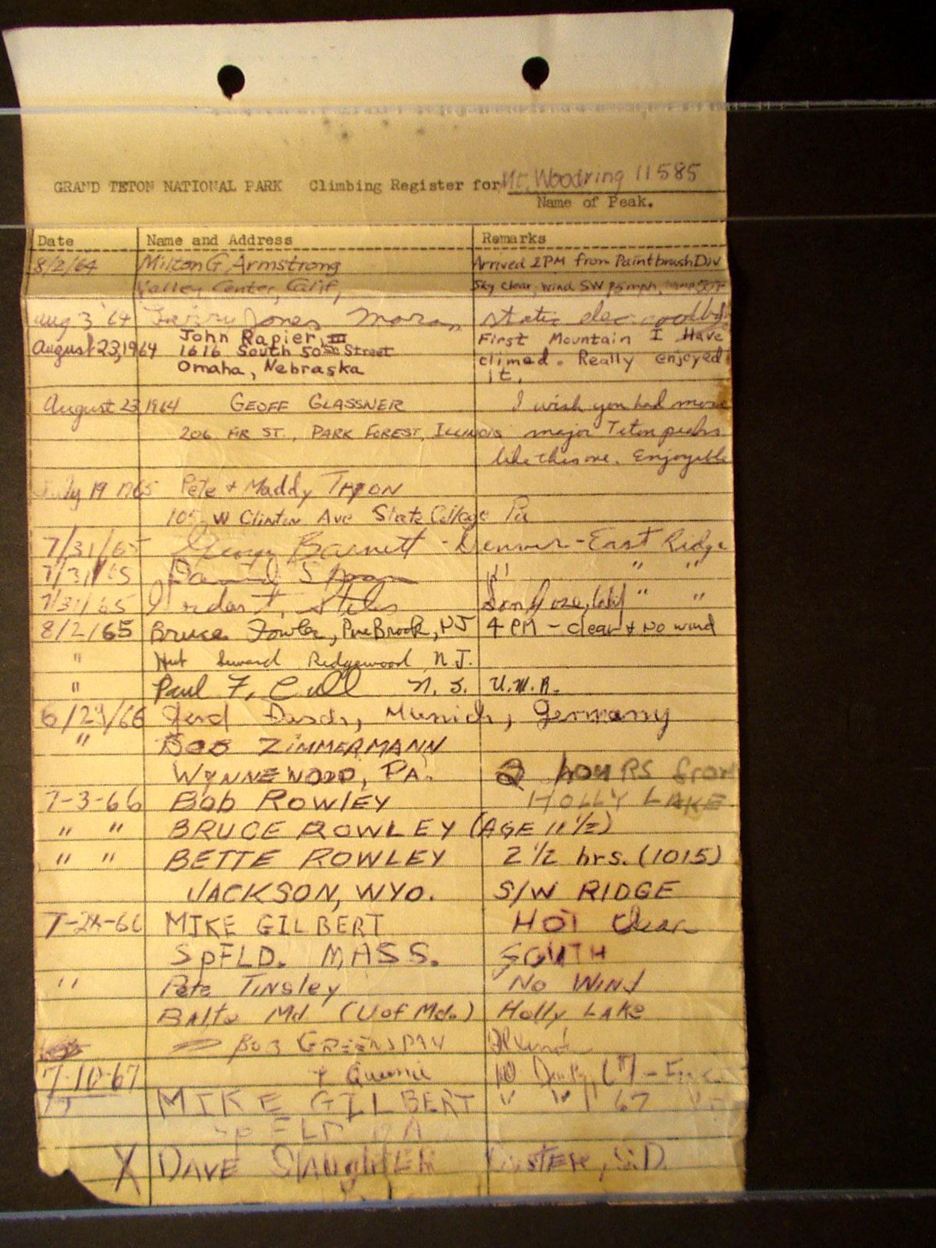 GRAND TETON NATIONAL PARK Climbing Register for Mt. Woodring 11585
Name of Peak.
Date Name and Address Remarks
8/2/64 Milton G. Armstrong Arrived 2PM from Paintbrush Div
Valley Center, Calif, Sky clear, wind SW
Aug 3 '64 Jones
August 23, 1964 John Rapier, III First Mountain I Have
1616 South 50th Street climed. Really enjoyed
Omaha, Nebraska it.
August 23 1964 GEOFF GLASSNER I wish you had more
206 FIR ST., PARK FOREST, ILLINOIS major Teton peaks
like this one. Enjoyable
July 19 1965 Pete + Maddy
105 W Clinton Ave State College Pa
7/31/65 George Barnett - Denver - East Ridge
7/31/65 David " " "
7/31/65 Stiles San Jose, Calif " "
8/2/65 Bruce Fowler, Pine Brook, NJ 4 PM - clear + No wind
" Ridgewood N.J.
" Paul F. Cull N.J. U.W.R.
6/29/66 Gerd Dasch, Munich, Germany
" BOB ZIMMERMANN
WYNNEWOOD, PA. 2 hours from
HOLLY LAKE
7-3-66 Bob ROWLEY
" " BRUCE ROWLEY (AGE 11 1/2)
" " BETTE ROWLEY 2 1/2 hrs. (1015)
JACKSON, WYO. S/W RIDGE
7-24-66 MIKE GILBERT HOT Clear
SpFLD. MASS. SOUTH
" Pete Tinsley No Wind
Balto Md (U of Md.) Holly Lake
BOB GREENSPAN
7-10-67 + Queenie
" MIKE GILBERT " " 67
SpFLD MA
X DAVE SlaughTER CUSTER, S.D.